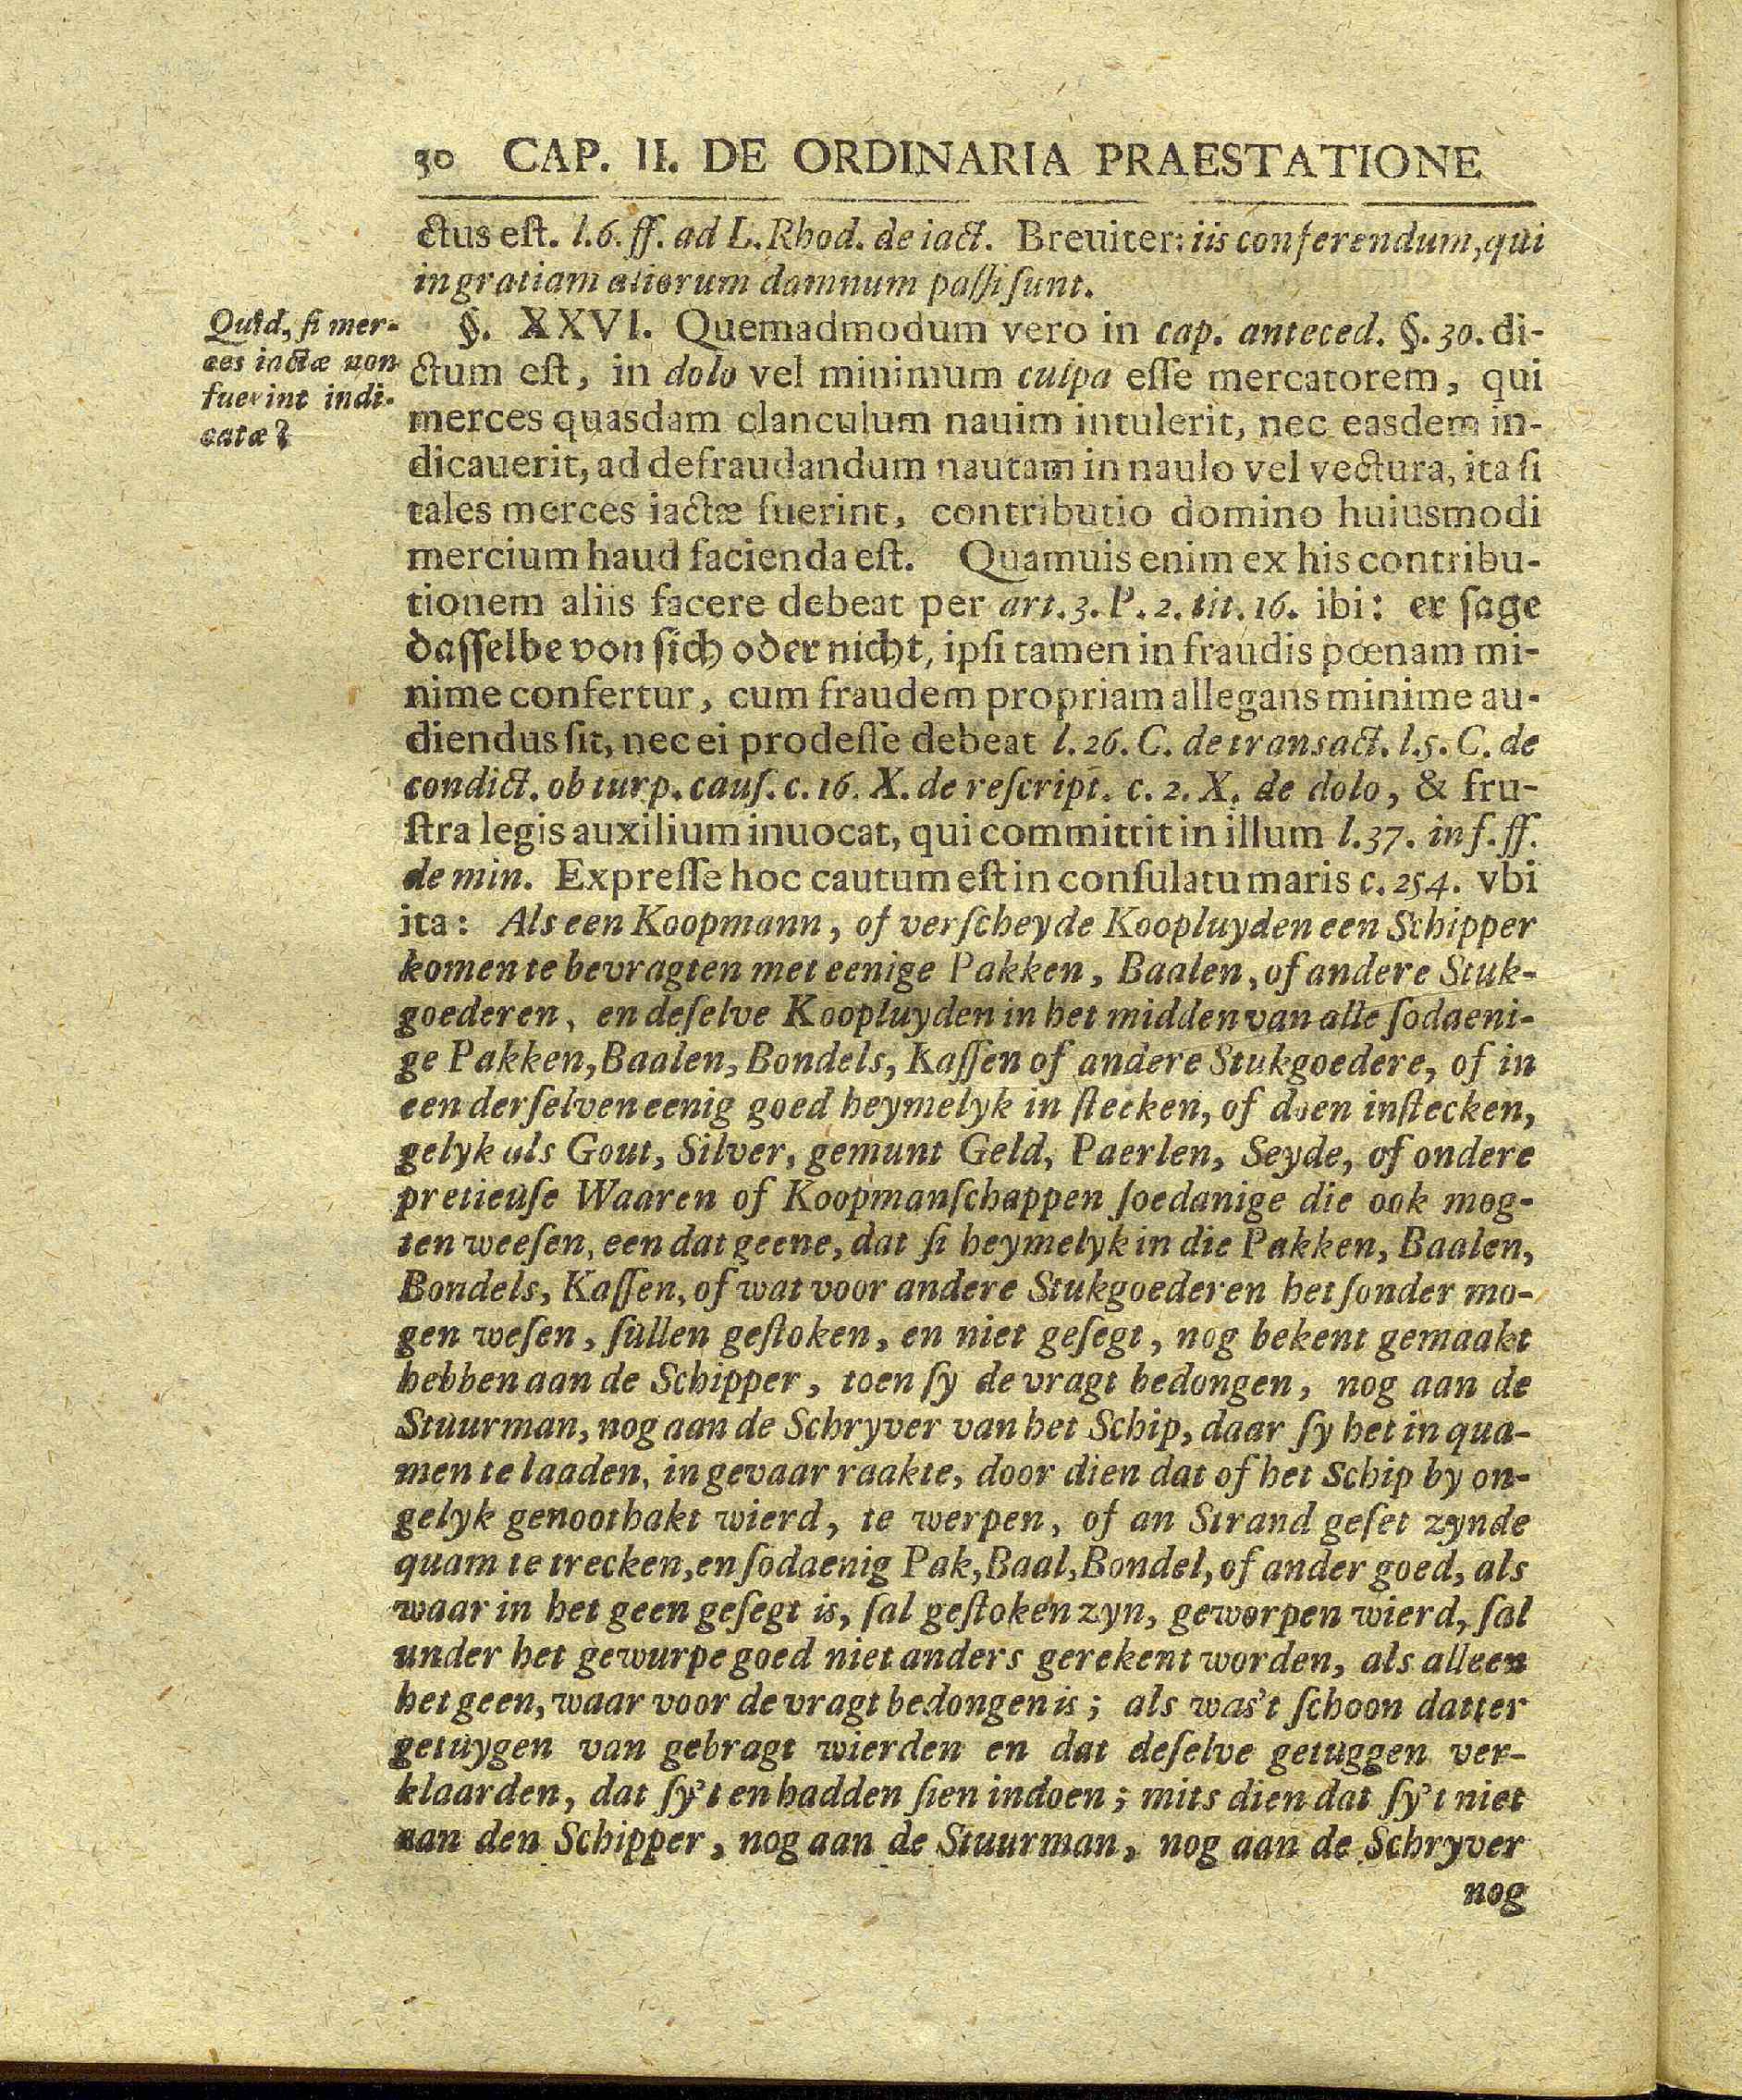 30 CAP. II. DE ORDINARIA PRAESTATIONE
ctus eſt. l. 6. ff. ad L. Rhod. de iact. Breuiter: iis conferendum, qui
in gratiam aliorum damnum paſſi ſunt.
Quid, ſi mer-
ces iactæ non
fuerint indi-
catæ?
§. XXVI. Quemadmodum vero in cap. anteced. §. 30. di-
ctum eſt, in dolo vel minimum culpa eſſe mercatorem, qui
merces quasdam clanculum nauim intulerit, nec easdem in-
dicauerit, ad defraudandum nautam in naulo vel vectura, ita ſi
tales merces iactæ fuerint, contributio domino huiusmodi
mercium haud facienda eſt. Quamuis enim ex his contribu-
tionem aliis facere debeat per art. 3. P. 2. tit. 16. ibi: er ſage
daſſelbe von ſich oder nicht, ipſi tamen in fraudis pœnam mi-
nime confertur, cum fraudem propriam allegans minime au-
diendus ſit, nec ei prodeſſe debeat l. 26. C. de transact. l. 5. C. de
condict. ob turp. cauſ. c. 16. X. de reſcript. c. 2. X. de dolo, & fru-
ſtra legis auxilium inuocat, qui committit in illum l. 37. in f. ff.
de min. Expreſſe hoc cautum eſt in conſulatu maris c. 254. vbi
ita: Als een Koopmann, of verſcheyde Koopluyden een Schipper
komen te bevragten met eenige Pakken, Baalen, of andere Stuk-
goederen, en deſelve Koopluyden in het midden van alle ſodaeni-
ge Pakken, Baalen, Bondels, Kaſſen of andere Stukgoedere, of in
een derſelven eenig goed heymelyk in ſtecken, of doen inſtecken,
gelyk als Gout, Silver, gemunt Geld, Paerlen, Seyde, of ondere
pretieuſe Waaren of Koopmanſchappen ſoedanige die ook mog-
ten weeſen, een dat geene, dat ſi heymelyk in die Pakken, Baalen,
Bondels, Kaſſen, of wat voor andere Stukgoederen het ſonder mo-
gen weſen, ſullen geſtoken, en niet geſegt, nog bekent gemaakt
hebben aan de Schipper, toen ſy de vragt bedongen, nog aan de
Stuurman, nog aan de Schryver van het Schip, daar ſy het in qua-
men te laaden, in gevaar raakte, door dien dat of het Schip by on-
gelyk genoothakt wierd, te werpen, of an Strand geſet zynde
quam te trecken, en ſodaenig Pak, Baal, Bondel, of ander goed, als
waar in het geen geſegt is, ſal geſtoken zyn, geworpen wierd, ſal
under het gewurpe goed niet anders gerekent worden, als alleen
het geen, waar voor de vragt bedongen is; als was't ſchoon datter
getuygen van gebragt wierden en dat deſelve getuggen ver-
klaarden, dat ſy't en hadden ſien indoen; mits dien dat ſy't niet
aan den Schipper, nog aan de Stuurman, nog aan de Schryver
nog